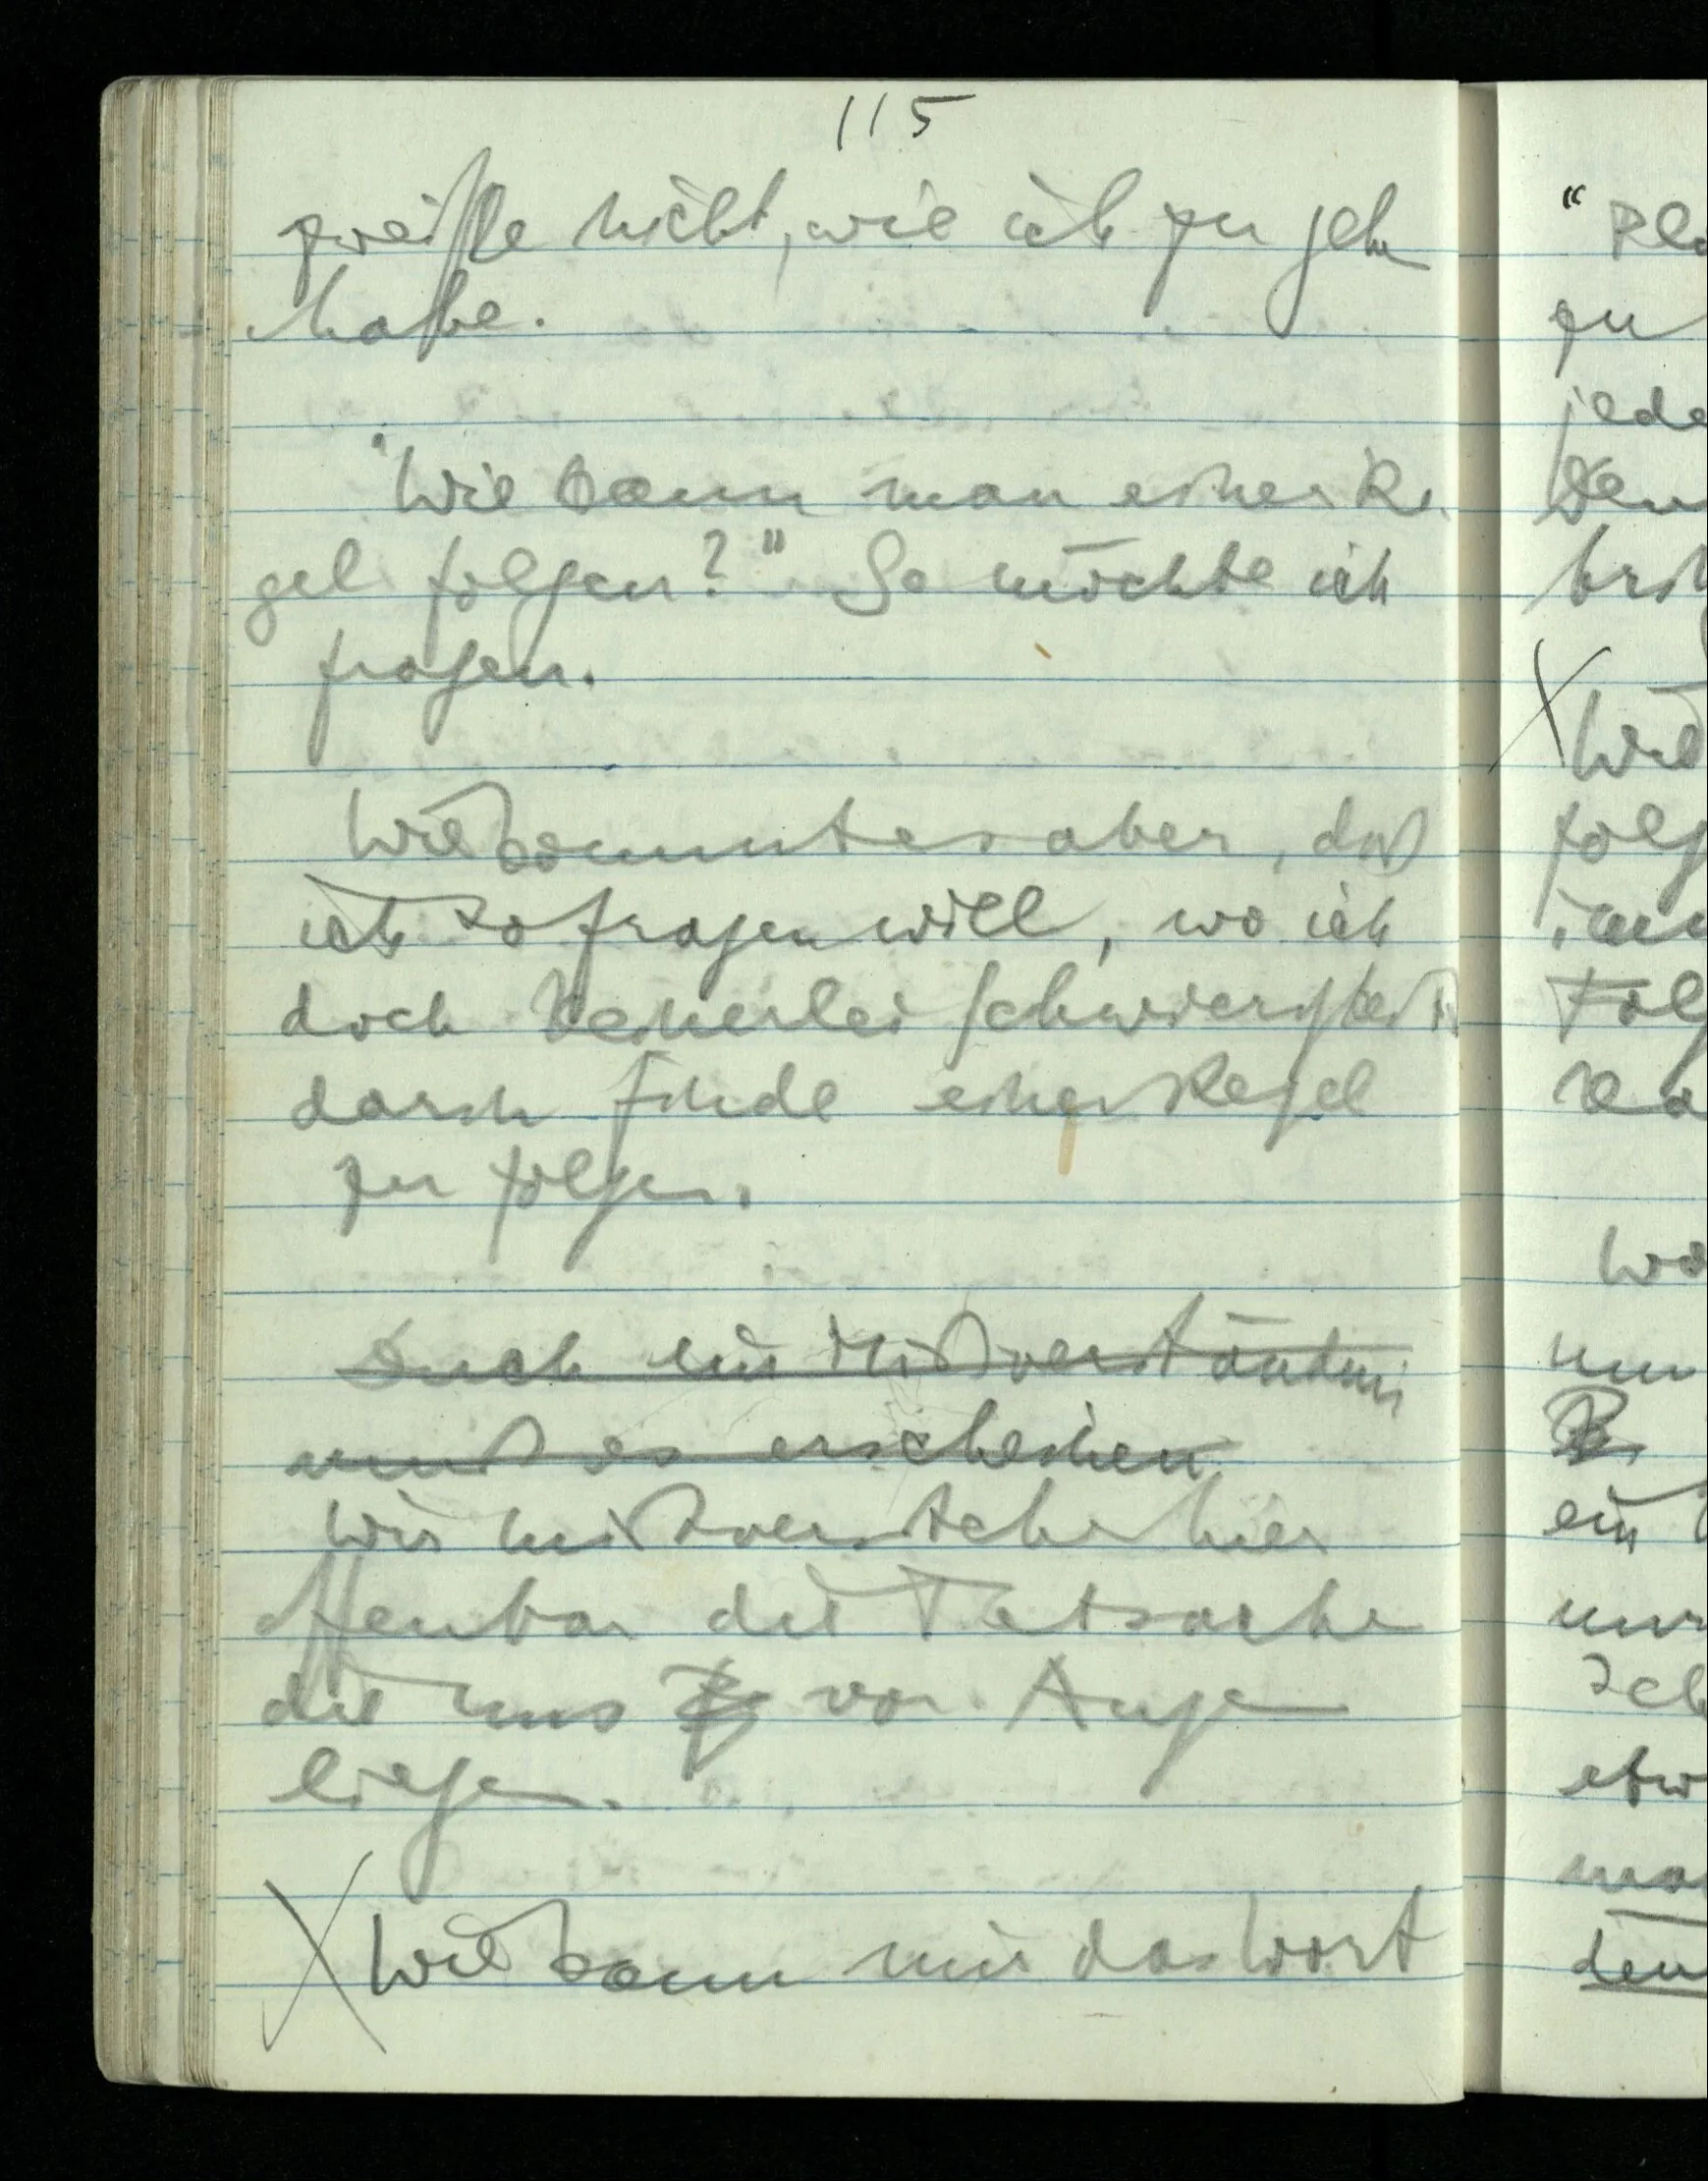 115
zweifle nicht, wie ich zu gehn
habe.
"Wie kann man einer Re¬
gel folgen?" So möchte ich
fragen.
Wie kommt es aber, daß
ich so fragen will, wo ich
doch keinerlei Schwierigkeit
darin finde einer Regel
zu folgen.
Durch ein Mißverständnis
muß es erscheinen
Wir mißverstehen hier
offenbar die Tatsachen
die uns vor Augen
liegen.
X Wie kann mir das Wort
"
zu
jede
X